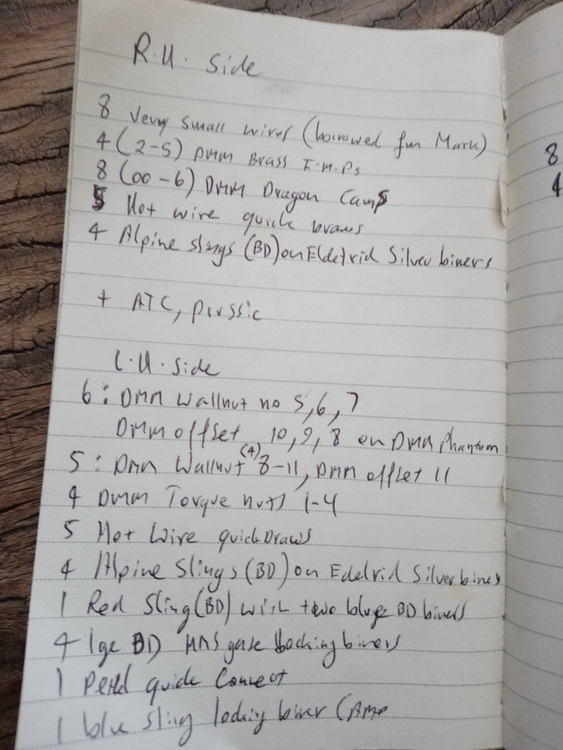 R.H. Side
8 Very small wires (borrowed fum Mark)
4 (2-5) DMM Brass I.M.Ps
8 (00-6) DMM Dragon Cams
5 Hot wire quick draws
4 Alpine slings (BD) on Eldetrid Silver biners
+ ATC, prussic
L.H. side
6: DMM Wallnut no 5, 6, 7
DMM offset 10, 9, 8 on DMM phantom
5: DMM Wallnut (4) 8-11, DMM offset 11
4 DMM Torque nuts 1-4
5 Hot Wire quickDraws
4 Alpine Slings (BD) on Edelrid Silver biners
1 Red Sling (BD) with two BD biners
4 lge BD HMS biners
1 quick Conect
1 blue sling locking biner CAMP
8
4